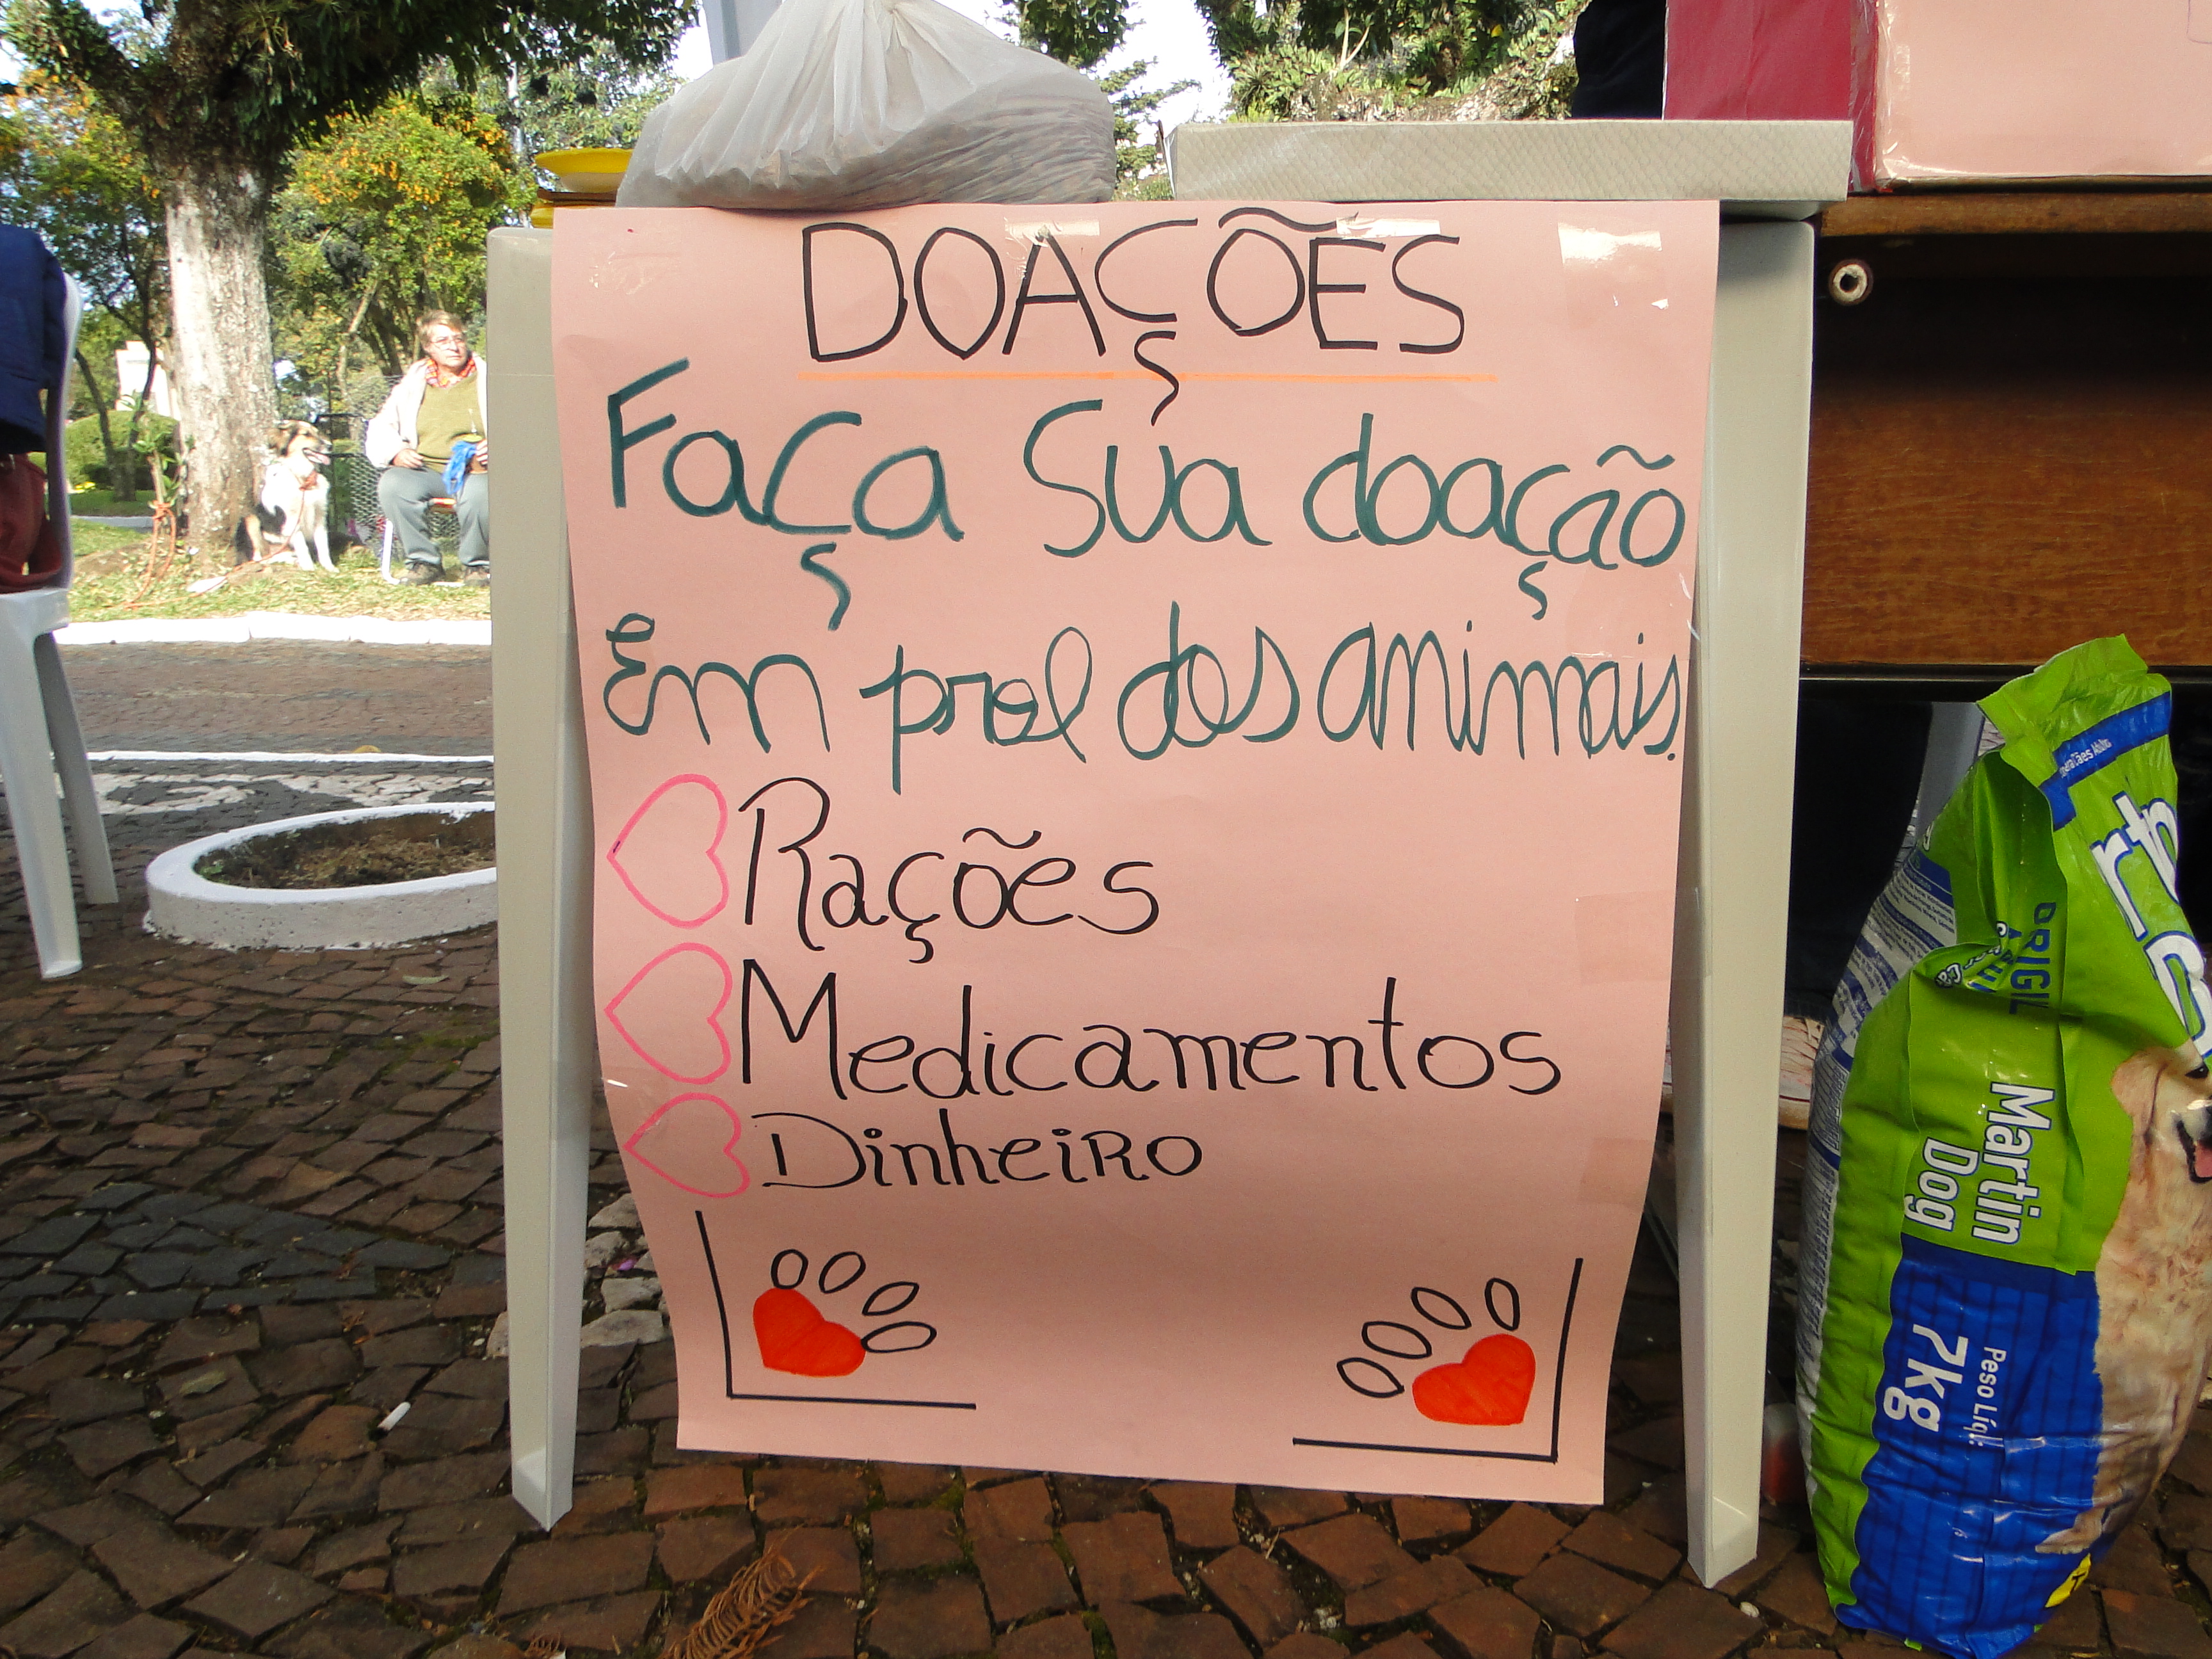 DOAÇÕES
Faça Sua doação
Em prol dos animais.
Rações
Medicamentos
Dinheiro
Martin
Dog
Peso Líq.:
7kg